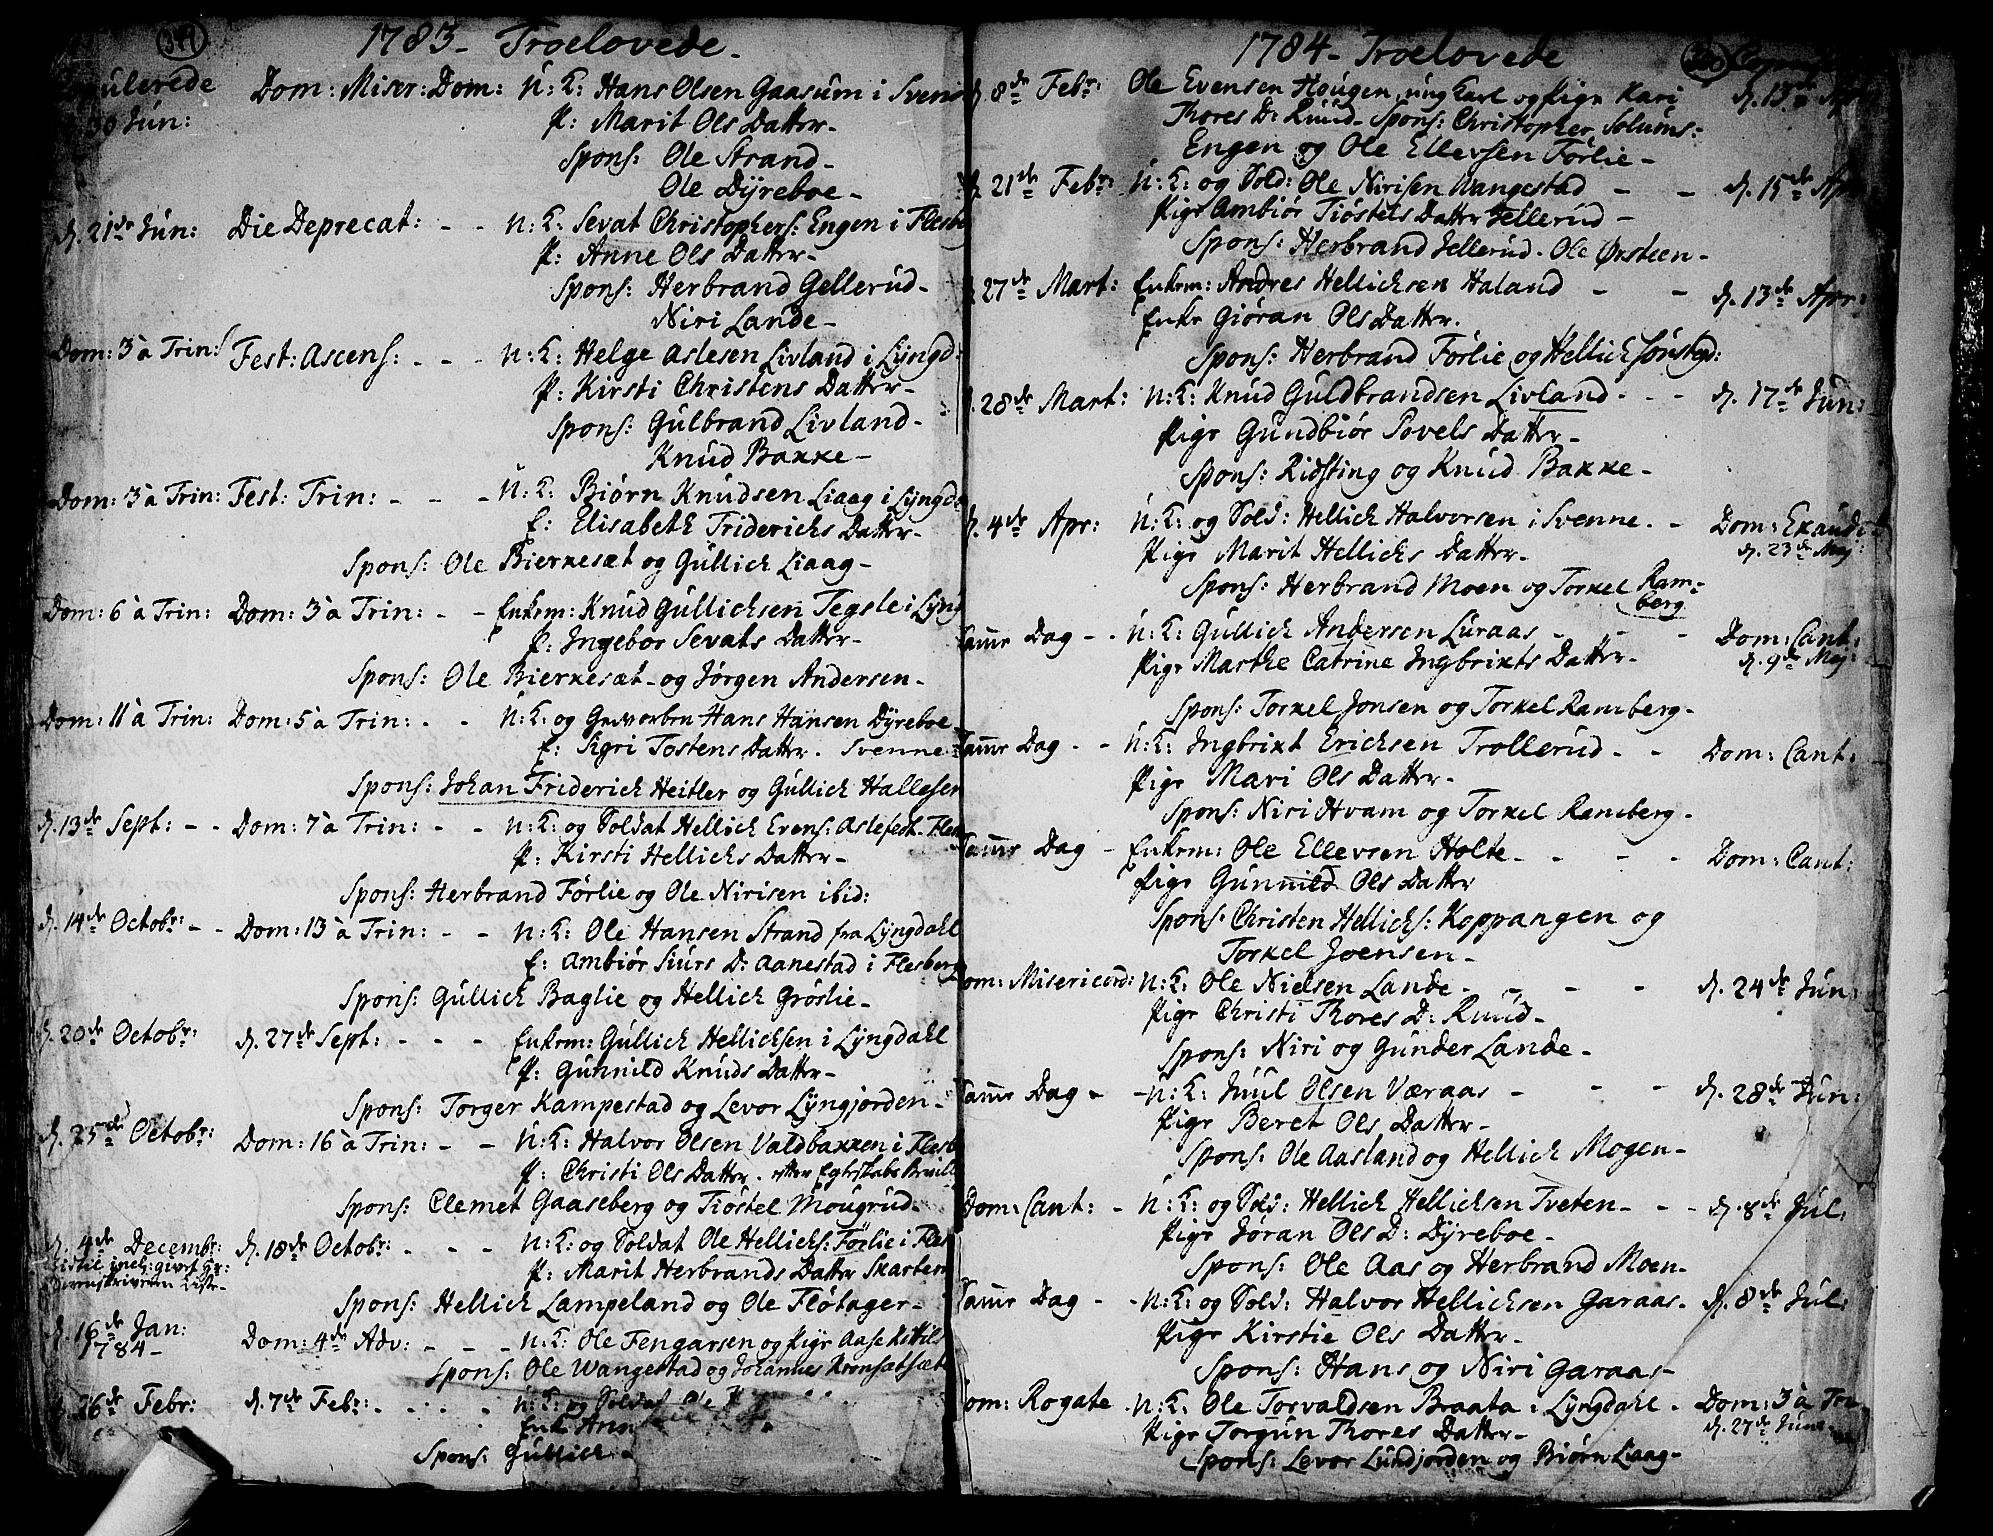 349
1783 - Troelovede -
Copulerede Dom: Miser: Dom: U: K: Hans Olsen Gaasum i Svene
30 Jun: P: Marit Ols Datter -
Spons: Ole Strand -
Ole Dÿreboe -
d. 21de Jun: Die Deprecat: - - U: K: Sevat Christophers: Engen i Flesb
P: Anne Ols Datter -
Spons: Herbrand Gellerud -
Niri Lande -
Dom: 3 à Trin: Fest: Ascens: - - - U: K: Helge Aslesen Livland i Lÿngd:
P: Kirsti Christens Datter -
Spons: Gulbrand Livland -
Knud Bakke -
Dom: 3 à Trin: Fest: Trin: - - - U: K: Biørn Knudsen Liaag i Lÿngd
E: Elisabeth Friderichs Datter -
Spons: Ole Bierkesæt og Gullich Liaag -
Dom: 6 à Trin: Dom: 3 à Trin: - - Enkem: Knud Gullichsen Tegsle i Lÿng
P: Ingebor Sevats Datter -
Spons: Ole Bierkesæt - og Jørgen Andersen -
Dom: 11 à Trin: Dom: 5 à Trin: - - U: K: og Geworben Hans Hansen Dÿreboe -
E: Sigri Tostens Datter. Svenne -
Spons: Johan Friderich Heitler og Gullich Hallesen
d. 13de Sept: - - Dom: 7 à Trin: - - U: K: og Soldat Hellich Evens: Aslefest. Fles
P: Kirsti Hellichs Datter -
Spons: Herbrand Førlie og Ole Nirisen ibid:
d. 14de Octobr: - - Dom: 13 à Trin: - - U: K: Ole Hansen Strand fra Lÿngdahl
E: Ambiør Siurs D: Aanestad i Flesberg
Spons: Gullich Baglie og Hellich Grøslie -
d. 20de Octobr: d. 27de Sept: - - - Enkem: Gullich Hellichsen i Lÿngdahl
P: Gunnild Knuds Datter -
Spons: Torger Kampestad og Levor Lÿngjorden -
d. 25de Octobr: Dom: 16 à Trin: - - U: K: Halvor Olsen Valdbakken i Flesb
P: Christi Ols Datter. efter Egteskabs Bevill
Spons: Clemet Gaaseberg og Tiøstel Mougrud -
d. 4de Decembr: d. 18de Octobr: - - - U: K: og Soldat Ole Hellichs: Førlie i Fles
P: Marit Herbrands Datter
Spons: Hellich Lampeland og Ole Fløtager -
d. 16de Jan: Dom: 4de Adv: - - - U: K: Ole Fengarsen og Pige Aase Kittils
1784 -
Spons: Ole Wangestad og Johannes
26de Febr: d. 7de Febr: - - - U: K: og Soldat Ole
Enk Ann
Spons: Gullich
1784 - Troelovede
d. 8de Febr: Ole Evensen Hougen, ung Karl og Pige Kari d. 13de Apr
Thores D: Ruud - Spons: Christopher Solums-
Engen og Ole Ellevsen Førlie -
d. 21de Febr: U: K: og Sold: Ole Nirisen Wangestad - - d. 15de Apr
Pige Ambiør Tiøstels Datter Jellerud -
Spons: Herbrand Jellerud. Ole Ørsteen -
27de Mart: Enkem: Andres Hellichsen Haland - - d. 13de Apr:
Enke Giøran Ols Datter.
Spons: Herbrand Førlie og Hellich Jønsted:
28de Mart: U: K: Knud Guldbrandsen Livland - - - d. 17de Jun:
Pige Gundbiør Sovels Datter -
Spons: Ridsting og Knud Bakke -
d. 4de Apr: U: K: og Sold: Hellich Halvorsen i Svenne. - Dom: Exaudi
d. 23de Maj:
Pige Marit Hellichs Datter -
Spons: Herbrand Moen og Torkel Ram-
berg
Samme Dag - - U: K: Gullich Andersen Luraas - - - Dom: Cant:
d. 9de Maj:
Pige Marthe Catrine Ingbrikts Datter -
Spons: Torkel Jonsen og Torkel Ramberg -
Samme Dag - - U: K: Ingbrixt Erichsen Trollerud - - Dom: Cant:
Pige Mari Ols Datter -
Spons: Niri Hvam og Torkel Ramberg -
Samme Dag - Enkem: Ole Ellevsen Holte - - - - Dom: Cant:
Pige Gunnild Ols Datter
Spons: Christen Hellichs: Koppangen og
Torkel Joensen -
Dom: Misericord: U: K: Ole Nielsen Lande - - - - d. 24de Jun:
Pige Christi Thores D: Ruud -
Spons: Niri og Gunder Lande -
Samme Dag - - U: K: Juul Olsen Væraas - - - d. 28de Jun:
Pige Beret Ols Datter -
Spons: Ole Aasland og Hellich Mogen -
Dom: Cant: - U: K: og Sold: Hellich Hellichsen Tveten - - - d. 8de Jul:
Pige Jøran Ols D: Dÿreboe -
Spons: Ole Aas og Herbrand Moen -
Samme Dag - - U: K: og Sold: Halvor Hellichsen Garaas - d. 8de Jul:
Pige Kirstie Ols Datter -
Spons: Hans og Niri Garaas -
Dom: Rogate - U: K: Ole Torvaldsen Braata i Lÿngdahl - Dom: 3 à Tri
d. 27de Junii
Pige Torgun Thores Datter -
Spons: Levor Lundjorden og Biørn Liaag -